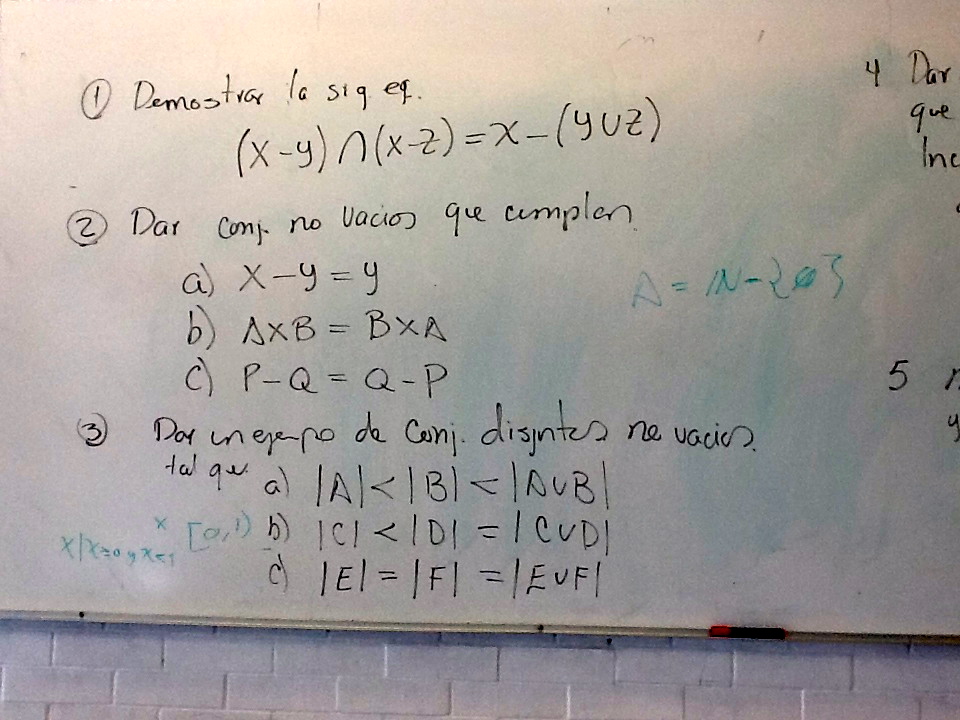 ① Demostrar la sig eq.
(x-y)∩(x-z)=x-(y∪z)
② Dar conj. no vacios que cumplen
a) x-y=y
b) A×B = B×A
c) P-Q = Q-P
③ Dar un ejempo de Conj. disjntos no vacios.
tal que a) |A|<|B|<|A∪B|
b) |C|<|D|=|C∪D|
c) |E|=|F|=|E∪F|
x [0,1)
x|x≥0 y x<1
A = ℕ-{0}
4 Dar
que
Inc
5
y